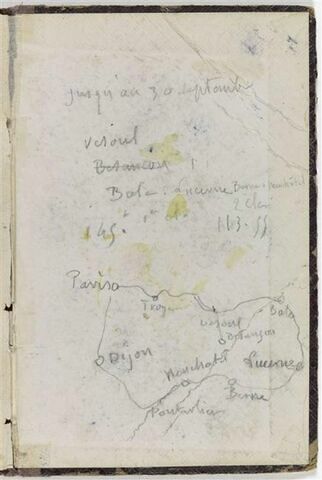 17
jusqu'au 30 septembre
Vesoul
Besançon 1
Bale : Lucerne Berne Neuchatel
2 Cl
145. 113.55
Paris
Troyes
Bale
Vesoul
Besançon
Dijon
Neuchatel
Lucerne
Berne
Pontarlier